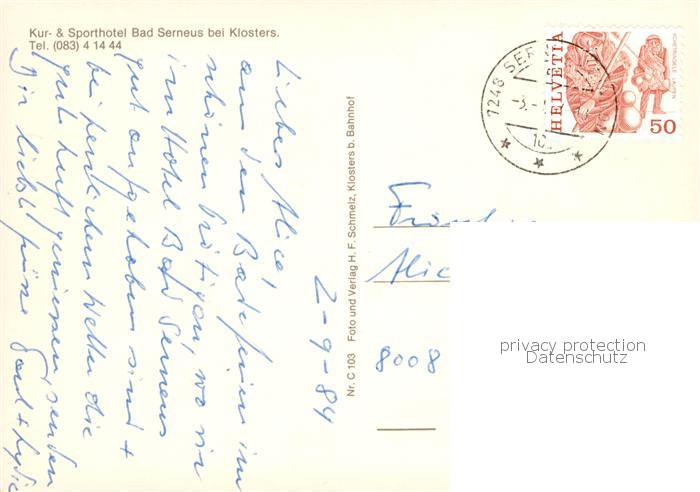 Kur- & Sporthotel Bad Serneus bei Klosters.
Tel. (083) 4 14 44
Liebes Alice,
aus den Badeferien im
schönen Prätigau, wo wir
im Hotel Bad Serneus
gut aufgehoben sind +
bei herrlichem Wetter die
gute Luft geniessen, senden
Dir liebe Grüsse
2-9-84
Nr. C 103 Foto und Verlag H. F. Schmelz, Klosters b. Bahnhof
HELVETIA
50
7248 SER
Alic
8008
privacy protection
Datenschutz